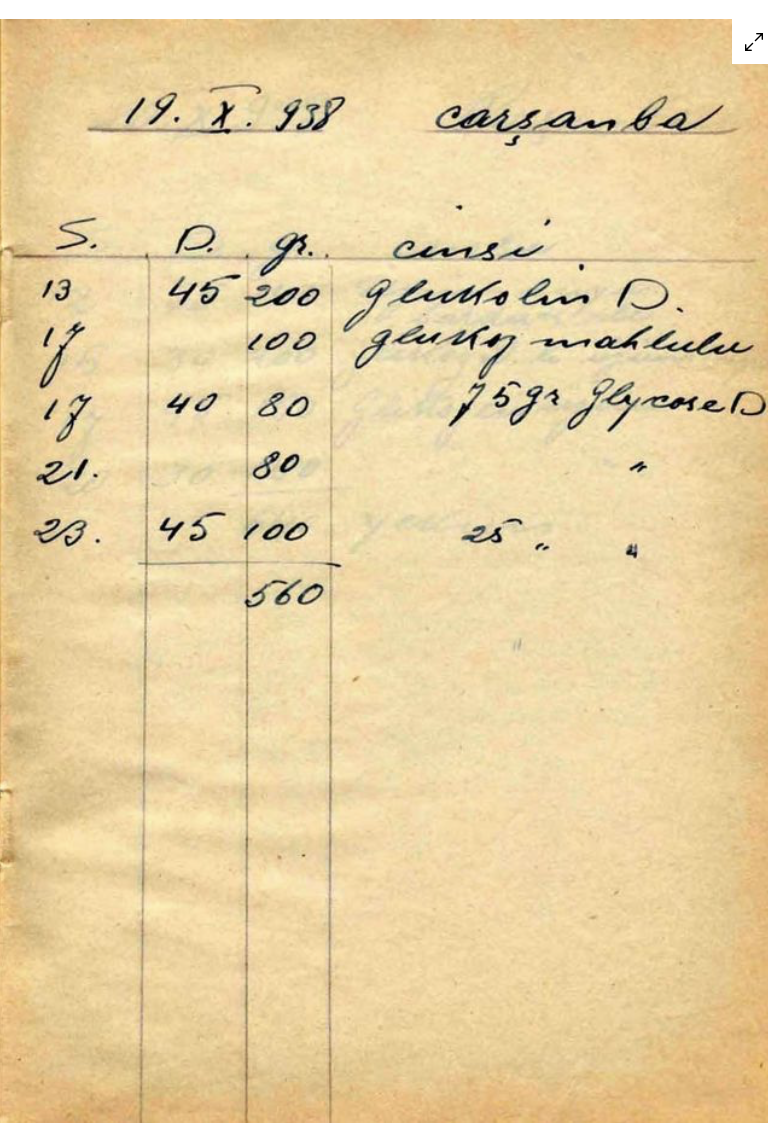 19. X. 938 carşanba
S. D. gr. cinsi
13 45 200 glukolin D.
17 100 glukoz mahlulu
17 40 80 75 gr Glycose D
21. 80 "
23. 45 100 25 " "
560